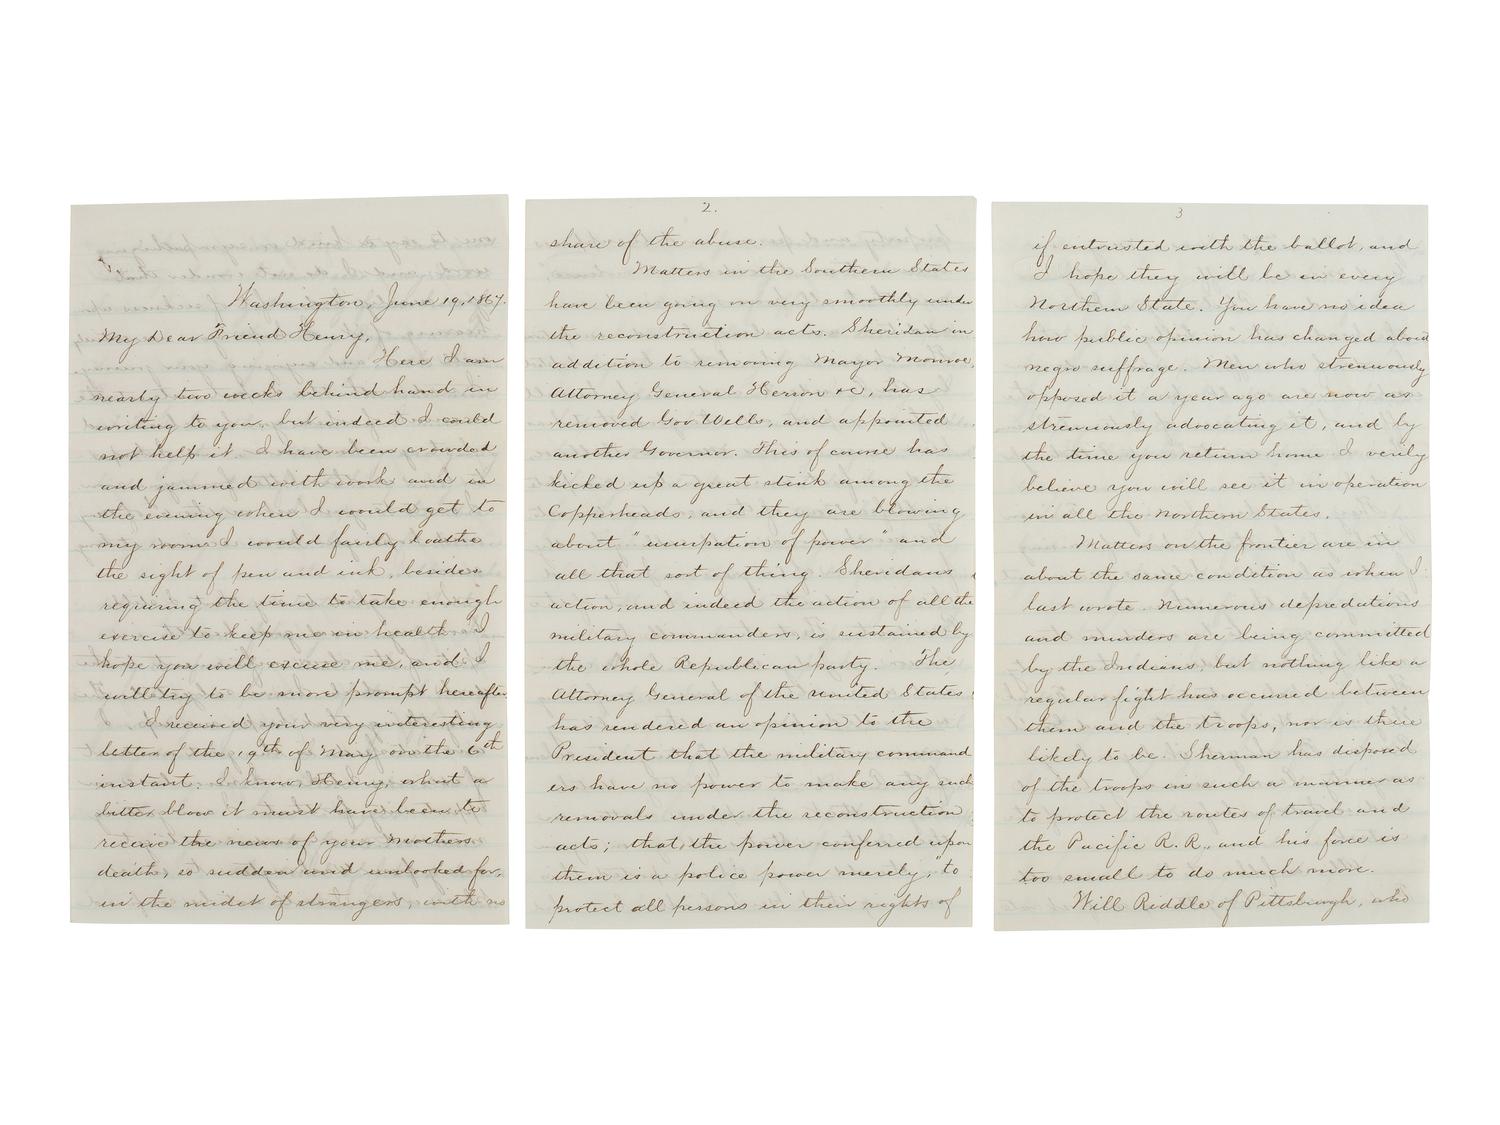 Washington, June 19, 1867.
My Dear Friend Henry,
Here I am
nearly two weeks behind hand in
writing to you, but indeed I could
not help it. I have been crowded
and jammed with work and in
the evening when I would get to
my room I would fairly loathe
the sight of pen and ink, besides
requiring the time to take enough
exercise to keep me in health. I
hope you will excuse me, and I
will try to be more prompt hereafter
I received your very interesting
letter of the 19th of May on the 6th
instant. I know, Henry, what a
bitter blow it must have been to
receive the news of your Mothers
death, so sudden and unlooked for,
in the midst of strangers, with no
2.
share of the abuse.
Matters in the Southern States
have been going on very smoothly under
the reconstruction acts. Sheridan in
addition to removing Mayor Monroe,
Attorney General Herron &c, has
removed Gov Wells, and appointed
another Governor. This of course has
kicked up a great stink among the
Copperheads, and they are blowing
about "usurpation of power" and
all that sort of thing. Sheridans
action, and indeed the action of all the
military commanders, is sustained by
the whole Republican party. The
Attorney General of the United States
has rendered an opinion to the
President that the military command
ers have no power to make any such
removals under the reconstruction
acts; that the power conferred upon
them is a police power merely, "to
protect all persons in their rights of
3
if entrusted with the ballot, and
I hope they will be in every
Northern State. You have no idea
how public opinion has changed about
negro suffrage. Men who strenuously
opposed it a year ago are now as
strenuously advocating it, and by
the time you return home I verily
believe you will see it in operation
in all the Northern States.
Matters on the frontier are in
about the same condition as when I
last wrote. Numerous depredations
and murders are being committed
by the Indians, but nothing like a
regular fight has occurred between
them and the troops, nor is there
likely to be. Sherman has disposed
of the troops in such a manner as
to protect the routes of travel and
the Pacific R. R., and his force is
too small to do much more.
Will Riddle of Pittsburgh, who